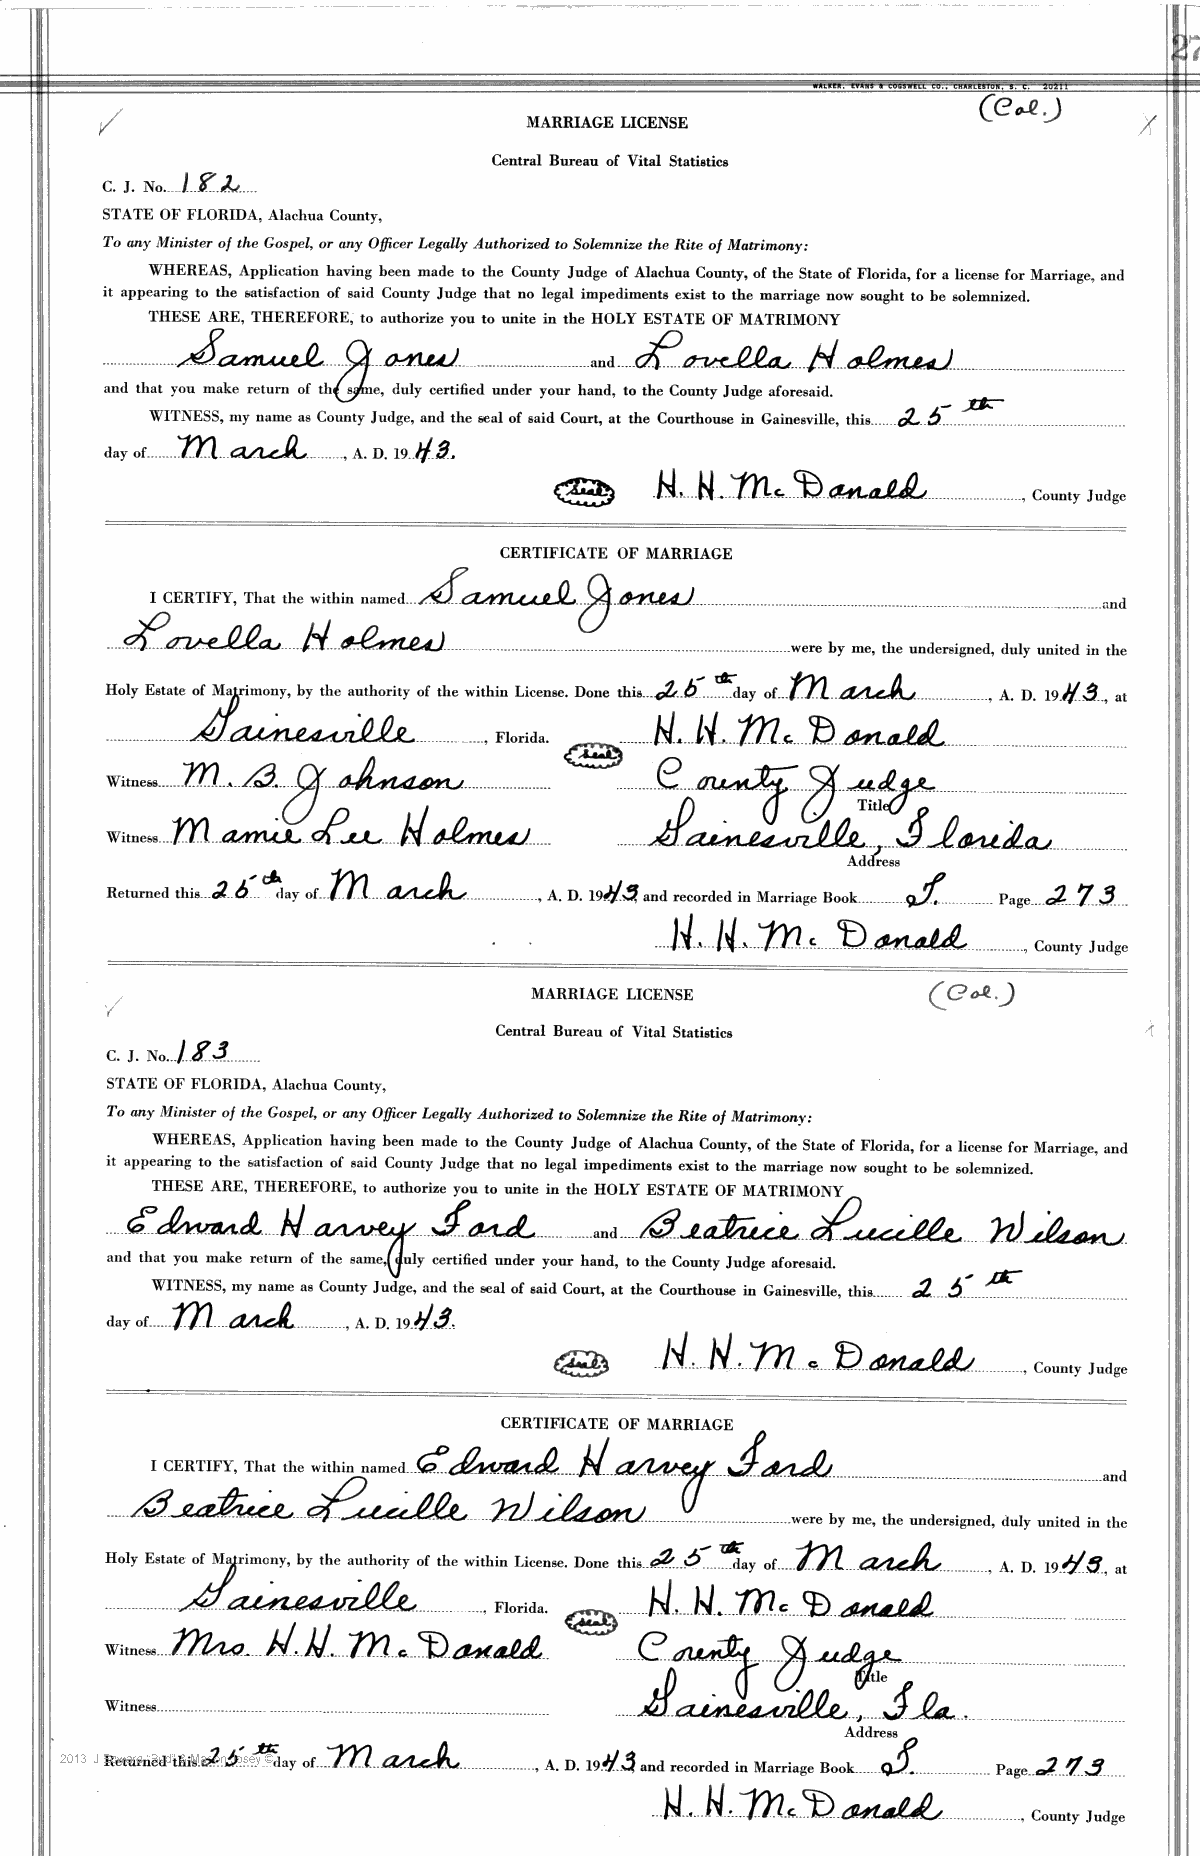 27
WALKER, EVANS & COGSWELL CO., CHARLESTON, S. C. 20211
(Col.)
MARRIAGE LICENSE
Central Bureau of Vital Statistics
C. J. No. 182
STATE OF FLORIDA, Alachua County,
To any Minister of the Gospel, or any Officer Legally Authorized to Solemnize the Rite of Matrimony:
WHEREAS, Application having been made to the County Judge of Alachua County, of the State of Florida, for a license for Marriage, and
it appearing to the satisfaction of said County Judge that no legal impediments exist to the marriage now sought to be solemnized.
THESE ARE, THEREFORE, to authorize you to unite in the HOLY ESTATE OF MATRIMONY
Samuel Jones and Lovella Holmes
and that you make return of the same, duly certified under your hand, to the County Judge aforesaid.
WITNESS, my name as County Judge, and the seal of said Court, at the Courthouse in Gainesville, this 25th
day of March, A. D. 1943.
Seal H. H. McDonald, County Judge
CERTIFICATE OF MARRIAGE
I CERTIFY, That the within named Samuel Jones and
Lovella Holmes were by me, the undersigned, duly united in the
Holy Estate of Matrimony, by the authority of the within License. Done this 25th day of March, A. D. 1943, at
Gainesville, Florida. Seal H. H. McDonald
Witness M. B. Johnson County Judge
Title
Witness Mamie Lee Holmes Gainesville, Florida
Address
Returned this 25th day of March, A. D. 1943 and recorded in Marriage Book S. Page 273
H. H. McDonald, County Judge
MARRIAGE LICENSE (Col.)
Central Bureau of Vital Statistics
C. J. No. 183
STATE OF FLORIDA, Alachua County,
To any Minister of the Gospel, or any Officer Legally Authorized to Solemnize the Rite of Matrimony:
WHEREAS, Application having been made to the County Judge of Alachua County, of the State of Florida, for a license for Marriage, and
it appearing to the satisfaction of said County Judge that no legal impediments exist to the marriage now sought to be solemnized.
THESE ARE, THEREFORE, to authorize you to unite in the HOLY ESTATE OF MATRIMONY
Edward Harvey Ford and Beatrice Lucille Wilson
and that you make return of the same, duly certified under your hand, to the County Judge aforesaid.
WITNESS, my name as County Judge, and the seal of said Court, at the Courthouse in Gainesville, this 25th
day of March, A. D. 1943.
Seal H. H. McDonald, County Judge
CERTIFICATE OF MARRIAGE
I CERTIFY, That the within named Edward Harvey Ford and
Beatrice Lucille Wilson were by me, the undersigned, duly united in the
Holy Estate of Matrimony, by the authority of the within License. Done this 25th day of March, A. D. 1943, at
Gainesville, Florida. Seal H. H. McDonald
Witness Mrs. H. H. McDonald County Judge
Title
Witness Gainesville, Fla.
Address
2013 J
Returned this 25th day of March, A. D. 1943 and recorded in Marriage Book S. Page 273
H. H. McDonald, County Judge